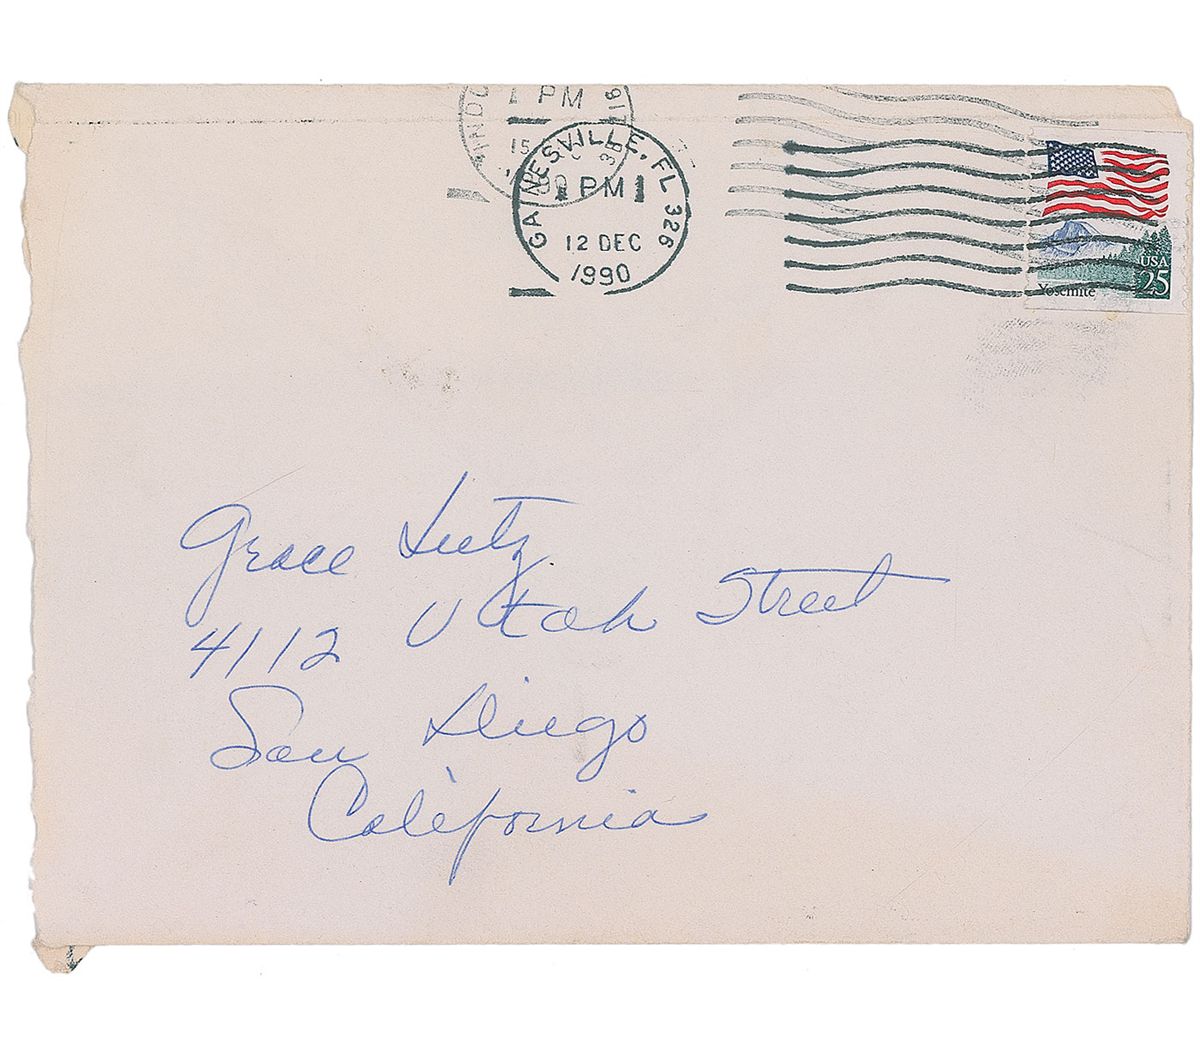 PM
15
GAINESVILLE, FL 326
PM 1
12 DEC
1990
USA
25
Yosemite
Grace Lutz
4112 Utah Street
San Diego
California